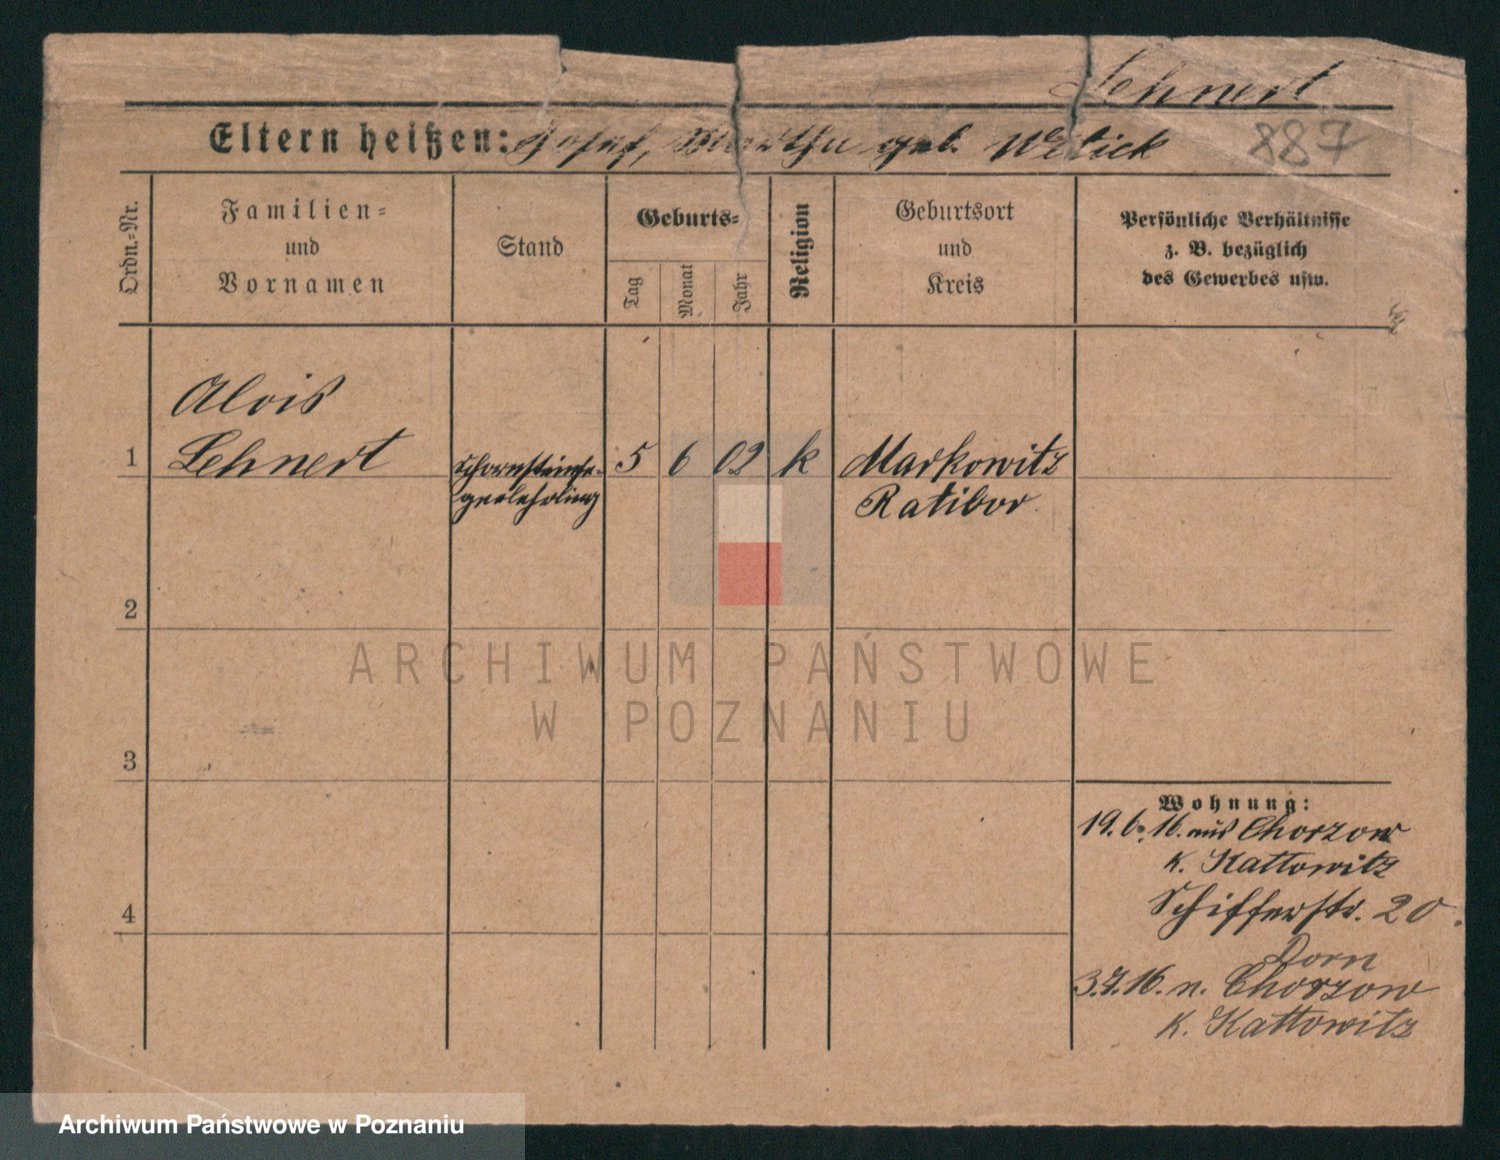 Lehnert
Eltern heißen: Josef, Martha geb. Wrlick
887
Ordn.=Nr.
Familien=
und
Vornamen
Stand
Geburts=
Tag
Monat
Jahr
Religion
Geburtsort
und
Kreis
Persönliche Verhältnisse
z. B. bezüglich
des Gewerbes usw.
Alois
1 Lehnert Schornsteinfe- 5 6 02 k Markowitz
gerlehrling Ratibor
2
3
4
Wohnung:
19. 6. 16. aus Chorzow
K. Kattowitz
Schifferstr. 20.
Dorn
3.7.16. n. Chorzow
K. Kattowitz
ARCHIWUM PAŃSTWOWE
W POZNANIU
Archiwum Państwowe w Poznaniu